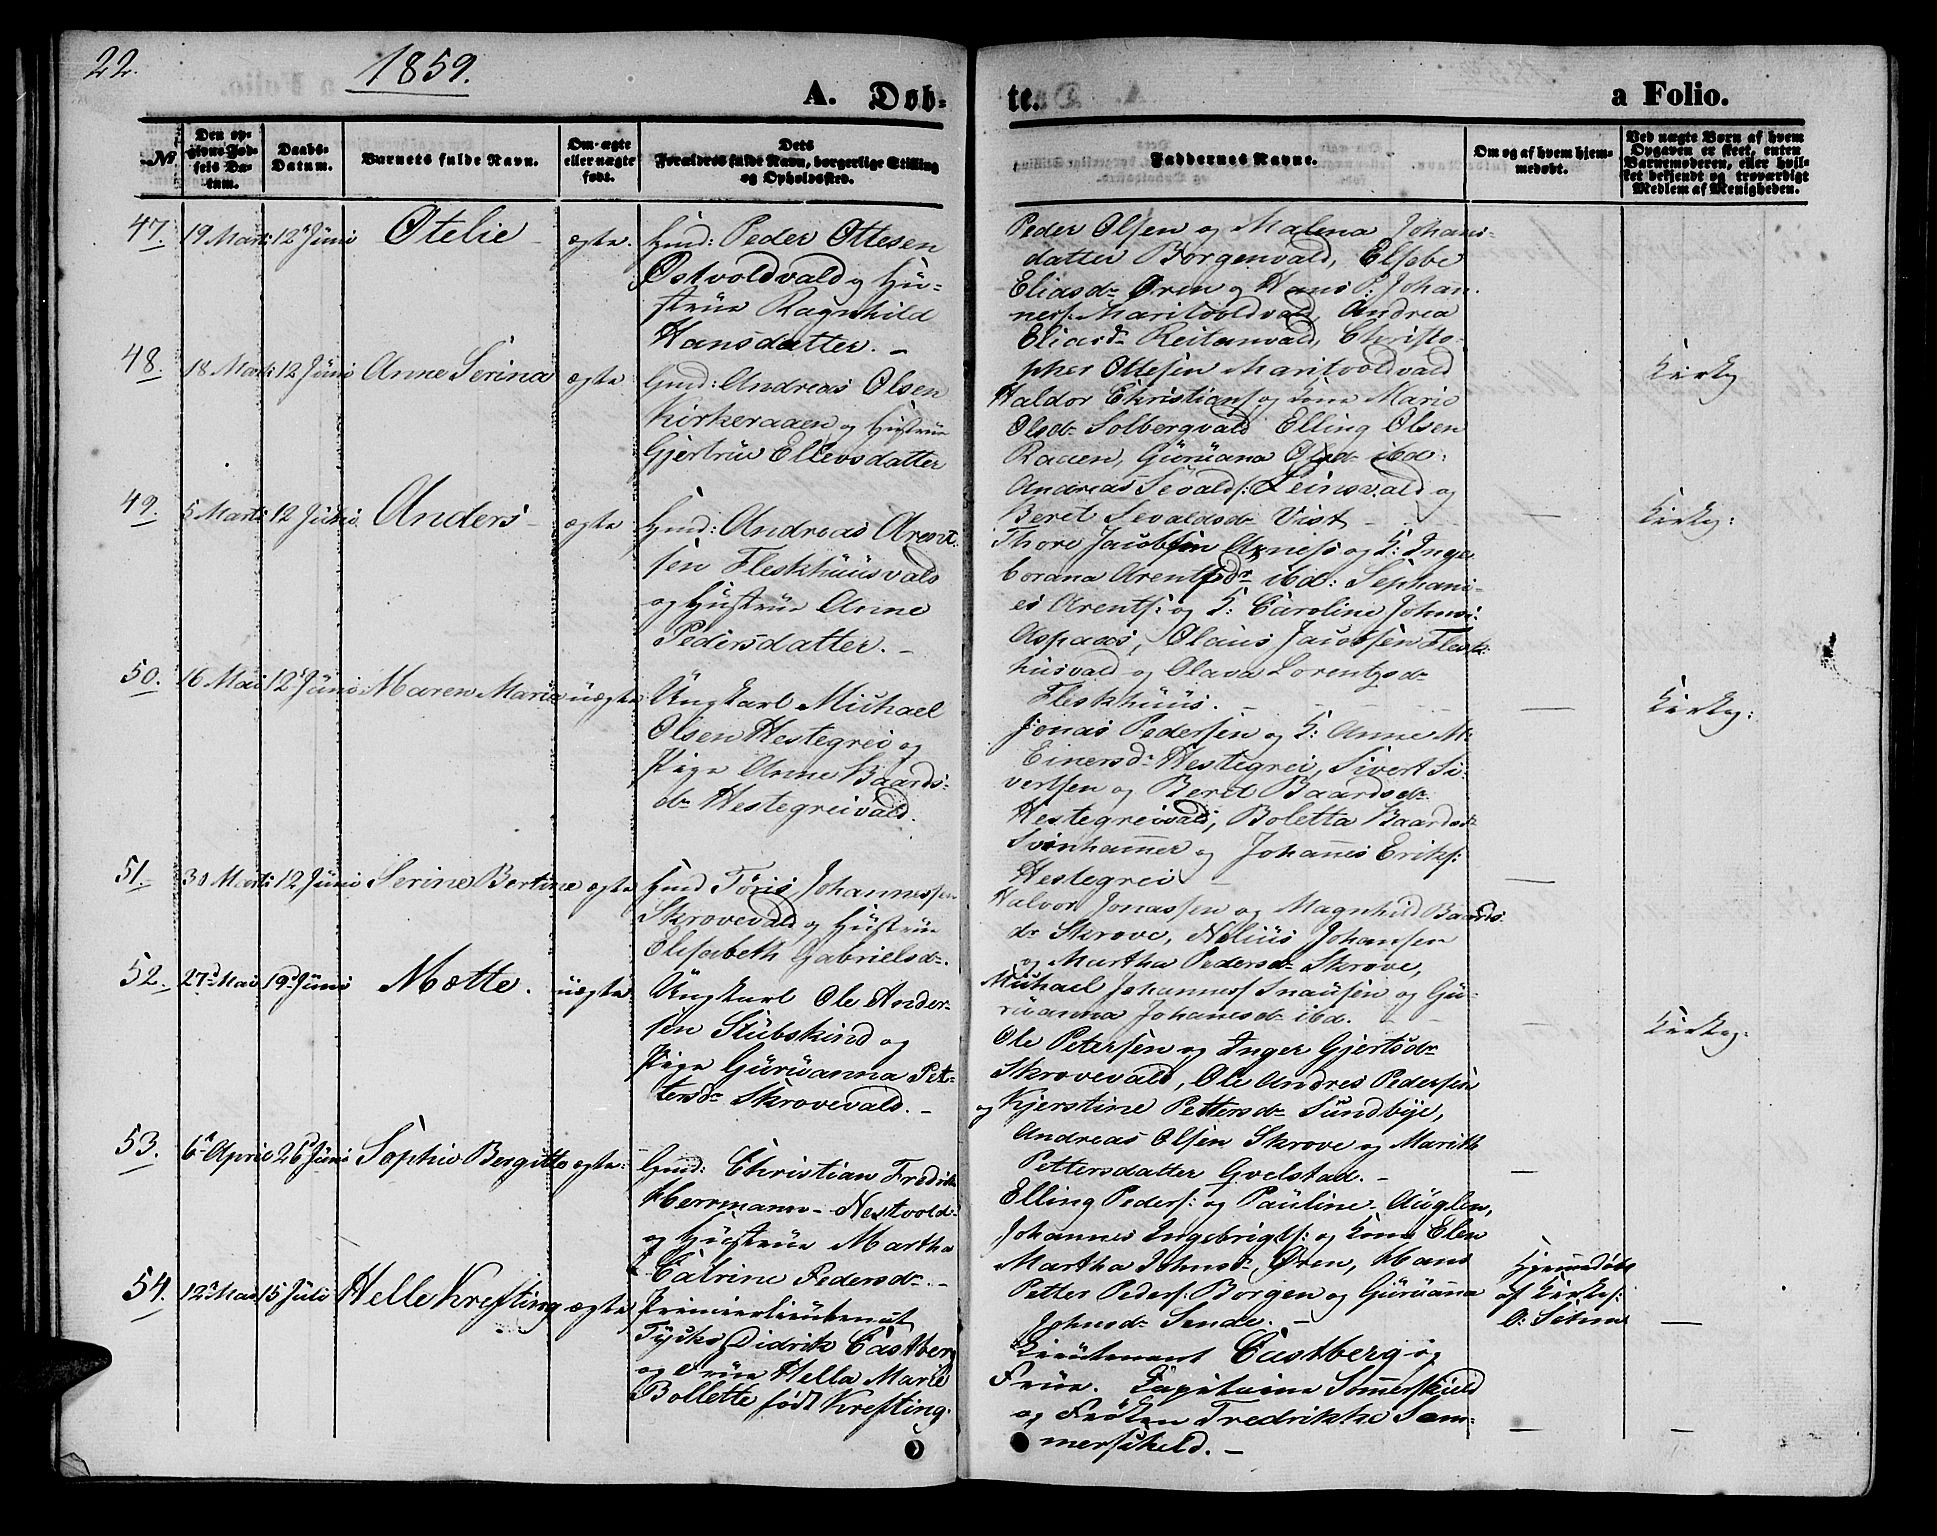 22.
1859.
A. Døb-
te.
a Folio.
No
Den op-
givne Fød-
sels Da-
tum.
Daabs-
Datum.
Barnets fulde Navn.
Om ægte
eller uægte
født.
Dets
Forældres fulde Navn, borgerlige Stilling
og Opholdssted.
Faddernes Navne.
Om og af hvem hjem-
medøbt.
Ved uægte Børn af hvem
Opgaven er skeet, enten
Barnemoderen, eller hvil-
ket bekjendt og troværdigt
Medlem af Menigheden.
47. 19 Marts 12 Juni Otelie ægte. Hmd: Peder Ottesen
Østvoldvald og Hu-
strue Ragnhild
Hansdatter. -
Peder Olsen og Malena Johans-
datter Borgenvald, Elsebe
Eliasdr Øren og Hans P. Johan-
ness. Maritvoldvald, Andrea
Eliasdr Reitanvald, Christo-
pher Ottesen Maritvoldvald
48. 18 Marts 12 Juni Anne Serina ægte Gmd: Andreas Olsen
Kirkeraaen og Hustrue
Gjertrue Ellevsdatter
Haldor Christians. og Kone Marie
Olsdr Solbergvald Elling Olsen
Raaen, Guruana Olsdr ibd:
Andreas Sevalds: Leinsvald og
Beret Sevaldsdr Vist
49. 5 Marts 12 Juni Anders ægte Hmd: Andreas Arent-
sen Fleskhuusvald
og Hustrue Anne
Pedersdatter. -
Thore Jacobsen og K: Inge-
borana Arentsdr ibd: Sephani-
es Arents: og K: Caroline Johns:
Aspaas, Olaus Jacobsen Flesk-
husvald og Olava Lorentzsdr
Fleskhuus. -
50. 16 Mai 12 Juni Maren Maria uægte Ungkarl Michael
Olsen Hestegrei og
Pige Anne Baards-
dr Hestegreivald.
Jonas Pedersen og K: Anne M.
Einersdr Hestegrei, Sivert Si-
vertsen og Beret Baardsdr
Hestegreivald, Boletta Baardsdr
Svinhammer og Johannes Eriks:
Hestegrei -
51. 30 Marts 12 Juni Serine Bertine ægte Hmd Tøris Johannessen
Skrovevald og Hustrue
Elisabeth Gabrielsdr.
Halvor Jonassen og Magnhild Baards-
dr Skrove, Nelius Johansen
og Martha Pedersdr Skrove,
Michael Johannes Snausen og Gu-
ruanna Johanesdr ibd.
52. 27 Mai 19 Juni Mætte. uægte Ungkarl Ole Ander-
sen Stubskind og
Pige Guruanna Pet-
tersdr Skrovevald. -
Ole Petersen og Inger Gjertsdr
Skrovevald, Ole Andres Pedersen
og Kjerstine Pettersdr Sundbye,
Andreas Olsen Skrove og Marith
Pettersdatter Gvelstad. -
53. 6 April 26 Juni Sophie Bergitte ægte: Gmd: Christian Fredrik
Herrmann - Nestvold
og Hustrue Martha
Catrine Pedersdr. -
Elling Peders: og Pauline Auglen,
Johannes Ingebrigts: og Kone Elen
Martha Johnsdr Øren, Hans
Petter Peders: Borgen og Guruanna
Johnsdr Sende. -
54. 12 Mai 15 Juli Helle Krefting ægte Premierlieutenant
Tycho Didrik Castberg
og Frue Hella Marie
Bollette født Krefting.
Lieutenant Castberg og
Frue. Capitaine Sommerskjeld
og Frøken Fredrikke Som-
merschield. -
Hjemmedøbt
af Kirkes:
O: Selnes
Kirkeg
Kirkeg:
Kirkeg:
Kirkeg: